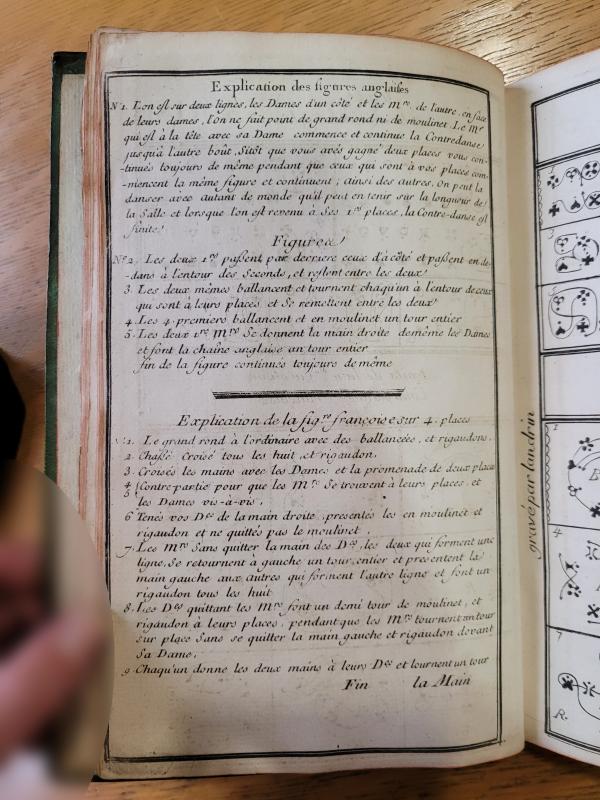 Explication des figures anglaises
N.º 1. L'on est sur deux lignes, les Dames d'un côté et les M.rs de l'autre, en face
de leurs dames, l'on ne fait point de grand rond ni de moulinet. Le M.r
qui est à la tête avec sa Dame commence et continue la Contredanse
jusqu'à l'autre boût, Sitôt que vous avés gagné deux places vous con-
-tinués toujours de même pendant que ceux qui sont à vos places com-
-mencent la même figure et continuent; ainsi des autres. On peut la
danser avec autant de monde qu'il peut en tenir sur la longueur de
la Salle et lorsque l'on est revenu à Ses 1.res places, la Contre-danse est
finite
Figures
N.º 2. Les deux 1.rs passent par derriere ceux d'à côté et passent en de-
-dans à l'entour des Seconds, et restent entre les deux
3. Les deux mêmes ballancent et tournent chaqu'un à l'entour de ceux
qui sont à leurs places et Se remettent entre les deux
4. Les 4 premiers ballancent et en moulinet un tour entier
5. Les deux 1.rs M.rs Se donnent la main droite de même les Dames
et font la chaîne anglaise un tour entier
fin de la figure continués toujours de même
Explication de la fig.re françoise sur 4. places
N.º 1. Le grand rond à l'ordinaire avec des ballancées, et rigaudons.
2. Chassé Croisé tous les huit, et rigaudon,
3. Croisés les mains avec les Dames et la promenade de deux places
4 5 Contre-partie pour que les M.rs Se trouvent à leurs places, et
les Dames vis-à-vis,
6 Tenés vos D.es de la main droite, presentés les en moulinet et
rigaudon et ne quittés pas le moulinet,
7. Les M.rs Sans quitter la main des D.es, les deux qui forment une
ligne, Se retournent à gauche un tour entier et presentent la
main gauche aux autres qui forment l'autre ligne et font un
rigaudon tous les huit
8. Les D.es quittant les M.rs font un demi tour de moulinet, et
rigaudon à leurs places, pendant que les M.rs tournent un tour
sur place Sans se quitter la main gauche et rigaudon devant
Sa Dame,
9. Chaqu'un donne les deux mains à leurs D.es et tournent un tour
Fin la Main
gravé par Landrin
1
4
7
R.